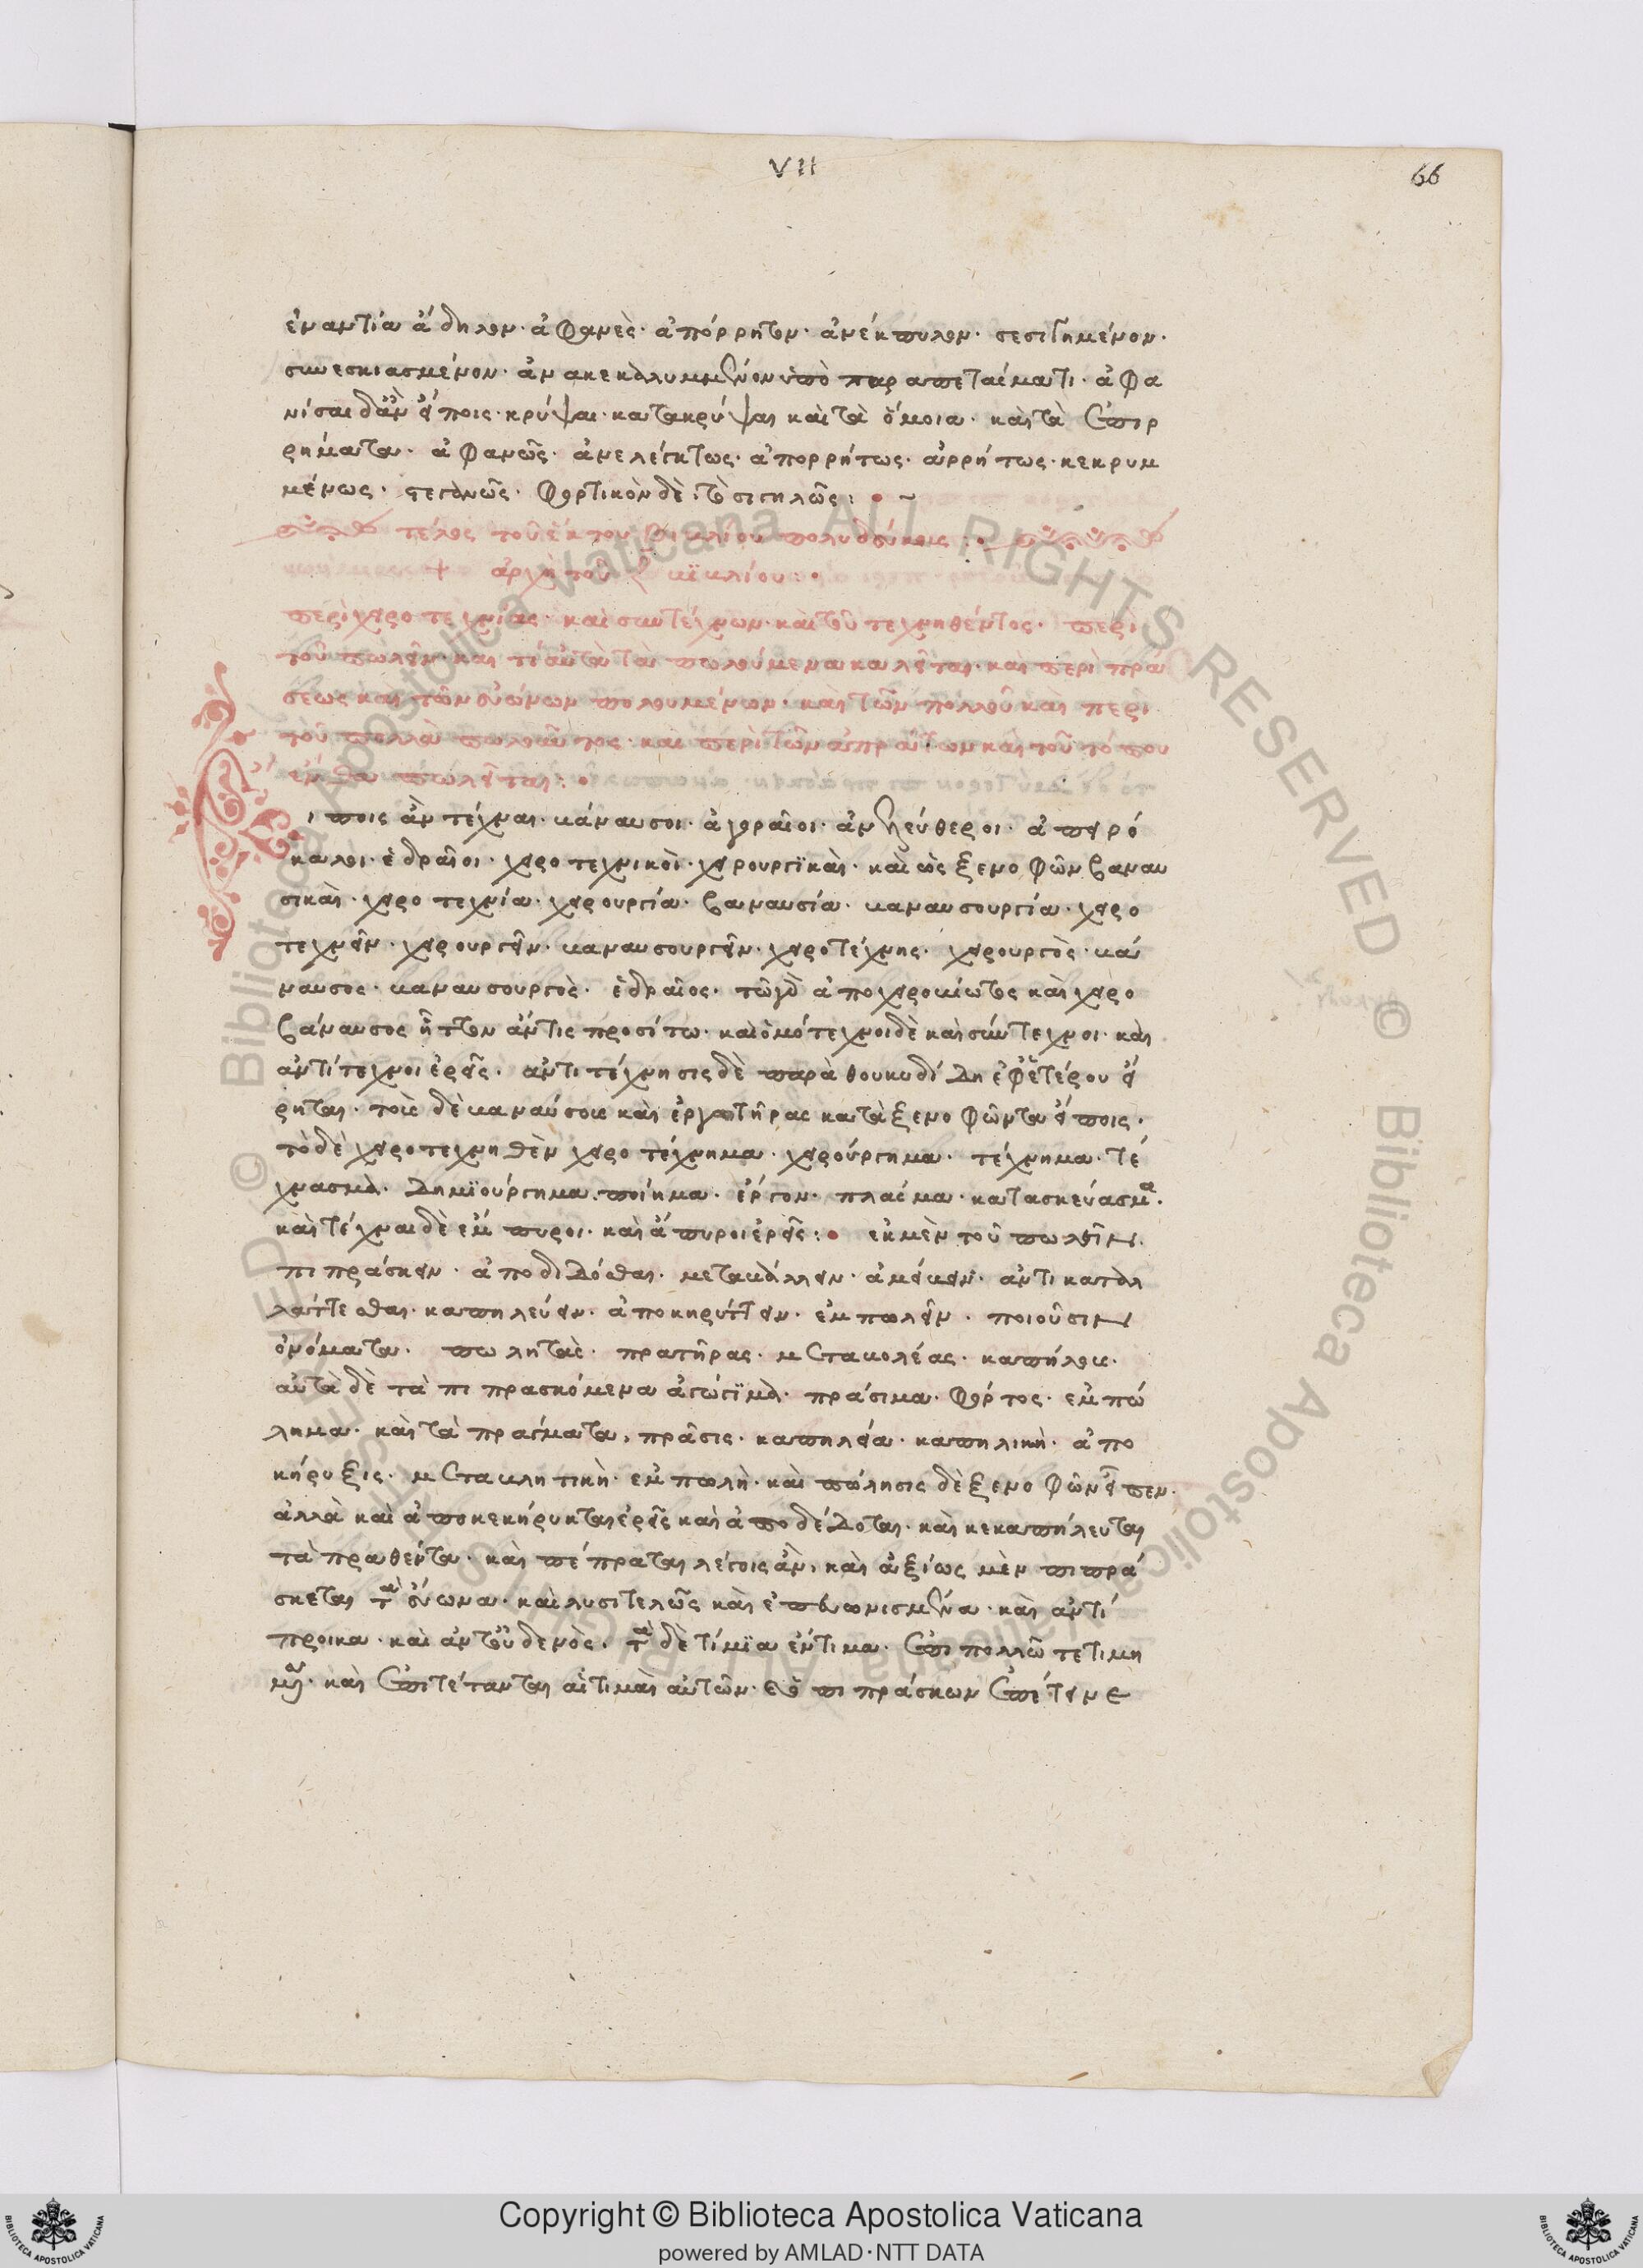 VII
66
ἐναντία ἄδηλον· ἀφανὲς· ἀπόρρητον· ἀνέκπυλον· σεσιγημένον·
συνεσκιασμένον· ἀνακεκαλυμμένον ὑπὸ παραπετάσματι· ἀφα
νίσαι δ' ἂν εἴποις· κρύψαι· κατακρύψαι καὶ τὰ ὅμοια· καὶ τὰ ἐπιρ
ρήματα· ἀφανῶς· ἀνελέγκτως· ἀπορρήτως· ἀρρήτως· κεκρυμ
μένως· στεγανῶς· φορτικὸν δὲ τὸ σιγηλῶς:
τέλος τοῦ ἕκτου βιβλίου πολυδεύκους:
ἀρχὴ τοῦ ζ βιβλίου:
περὶ χειροτεχνίας· καὶ συντέχνων· καὶ τοῦ τεχνηθέντος· περὶ
τοῦ πωλεῖν· καὶ τί αὐτὰ τὰ πωλούμενα καλεῖται· καὶ περὶ πρά
σεως καὶ τῶν εὐώνων πολουμένων· καὶ τῶν πολλοῦ καὶ περὶ
τοῦ πολλὰ πωλοῦντος· καὶ περὶ τῶν ἀπράτων καὶ τοῦ τόπου
ἔνθα πωλεῖται:
ιποις ἂν τέχναι· βάναυσοι· ἀγοραῖοι· ἀνελεύθεροι· ἀπειρό
καλοι· ἑδραῖοι· χειροτεχνικοὶ· χειρουργϊκαὶ· καὶ ὡς ξενοφῶν βαναυ
σικαὶ· χειροτεχνία· χειρουργία· βαναυσία· βαναυσουργία· χειρο
τεχνεῖν· χειρουργεῖν· βαναυσουργεῖν· χειροτέχνης· χειρουργὸς· βά
ναυσος· βαναυσουργὸς· ἑδραῖος· τῶ γὰρ ἀποχειροβιώτος καὶ χειρο
βάναυσος ἧττον ἄν τις προσίτω· καὶ ὁμότεχνοι δὲ καὶ σύντεχνοι· καὶ
ἀντίτεχνοι ἐρεῖς· ἀντιτέχνησις δὲ παρὰ θουκυδίδη ἐφ' ἑτέρου εἴ
ρηται· τοὺς δὲ βαναύσους καὶ ἐργατῆρας κατὰ ξενοφῶντα εἴποις·
τὸ δὲ χειροτεχνηθὲν χειροτέχνημα· χειρούργημα· τέχνημα· τέ
χνασμα· δημϊούργημα· ποίημα· ἔργον· πλάσμα· κατασκεύασμα·
καὶ τέχναι δὲ ἔμπυροι· καὶ ἄπυροι ἐρεῖς: ἐκ μὲν τοῦ πωλεῖν
πιπράσκειν· ἀποδίδοσθαι· μεταβάλλειν· ἀμείβειν· ἀντικαταλ
λάττεσθαι· καπηλεύειν· ἀποκηρύττειν· ἐμπολεῖν· ποιοῦσιν
ὀνόματα· πωλητὰς· πρατῆρας· μεταβολέας· καπήλους·
αὐτὰ δὲ τὰ πιπρασκόμενα ἀγώγϊμα· πράσιμα· φόρτος· ἐμπώ
λημα· καὶ τὰ πράγματα, πρᾶσις· καπηλεία· καπηλικὴ· ἀπο
κήρυξις· μεταβλητικὴ· ἐμπολὴ· καὶ πώλησις δὲ ξενοφῶν εἶπεν·
ἀλλὰ καὶ ἀποκεκήρυκται ἐρεῖς καὶ ἀποδέδοται· καὶ κεκαπήλευται
τὰ πραθέντα· καὶ πέπραται λέγοις ἂν, καὶ ἀξίως μὲν πιπρά
σκεται τὰ εὔωνα· καὶ λυσιτελῶς καὶ ἐπευωνισμένα· καὶ ἀντί
προικα· καὶ ἀντ' οὐδενὸς· τὰ δὲ τίμϊα ἔντιμα· ἐπὶ πολλῶ τετιμη
μένα· καὶ ἐπιτέτανται αἱ τιμαὶ αὐτῶν· καὶ ὁ πιπράσκων ἐπέτεινε